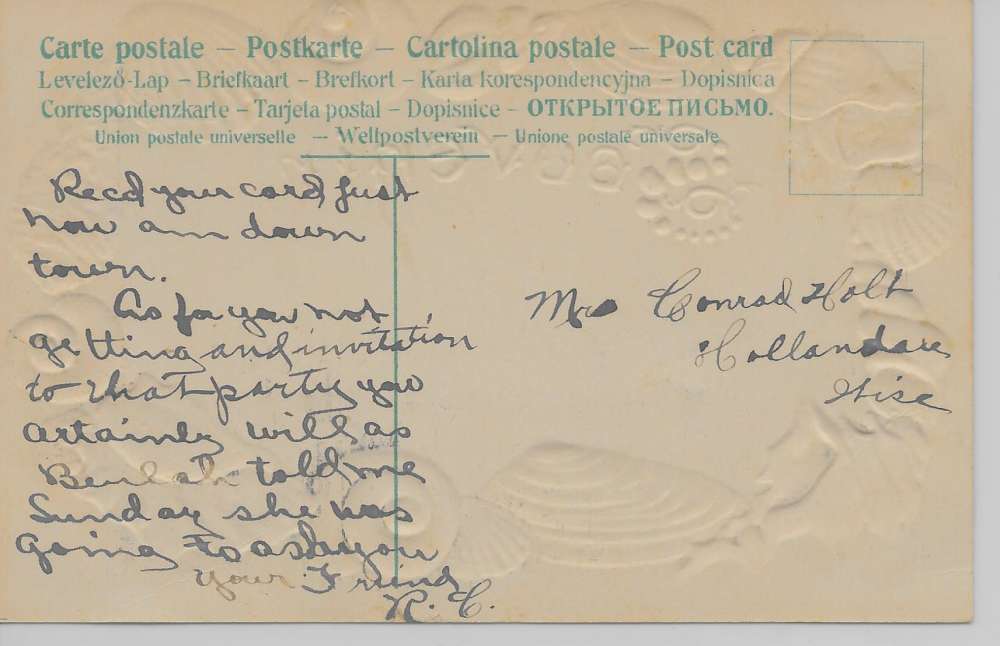 Carte postale — Postkarte — Cartolina postale — Post card
Levelező-Lap — Briefkaart — Brefkort — Karta korespondencyjna — Dopisnica
Correspondenzkarte — Tarjeta postal — Dopisnice — ОТКРЫТОЕ ПИСЬМО.
Union postale universelle — Weltpostverein — Unione postale universale
Recd your card just
now am down
town.
As for you not
getting and invitation
to that party you
certainly will as
Beulah told me
Sunday she was
going to ask you
Your Friend
R. C.
Mrs Conrad Holt
Hollandale
Wisc